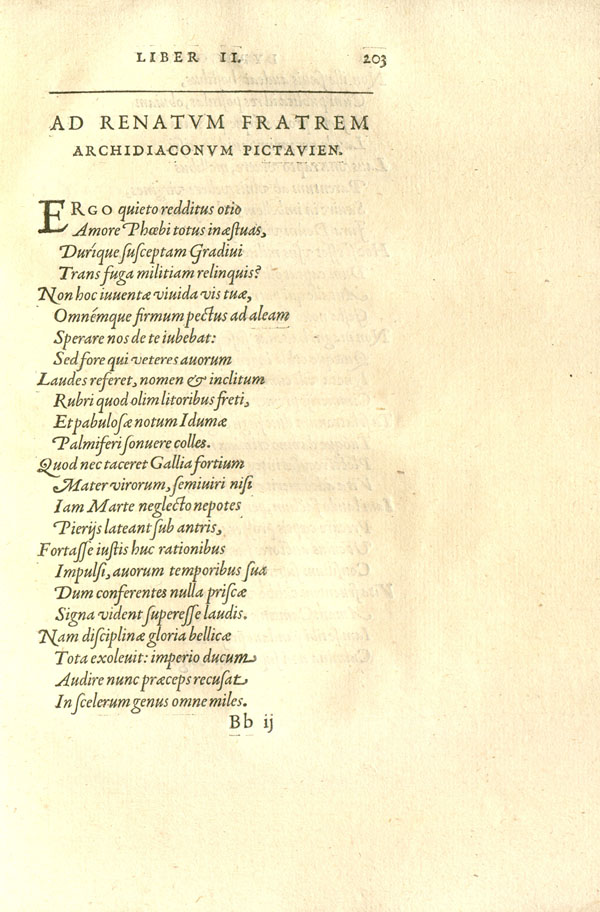 LIBER II. 203
AD RENATVM FRATREM
ARCHIDIACONVM PICTAVIEN.
ERGO quieto redditus otio
Amore Phœbi totus inæstuas,
Duríque susceptam Gradiui
Trans fuga militiam relinquis?
Non hoc iuuentæ viuida vis tuæ,
Omnémque firmum pectus ad aleam
Sperare nos de te iubebat:
Sed fore qui veteres auorum
Laudes referet, nomen & inclitum
Rubri quod olim litoribus freti,
Et pabulosæ notum Idumæ
Palmiferi sonuere colles.
Quod nec taceret Gallia fortium
Mater virorum, semiuiri nisi
Iam Marte neglecto nepotes
Pierijs lateant sub antris,
Fortasse iustis huc rationibus
Impulsi, auorum temporibus sua
Dum conferentes nulla priscæ
Signa vident superesse laudis.
Nam disciplinæ gloria bellicæ
Tota exoleuit: imperio ducum
Audire nunc præceps recusat
In scelerum genus omne miles.
Bb ij